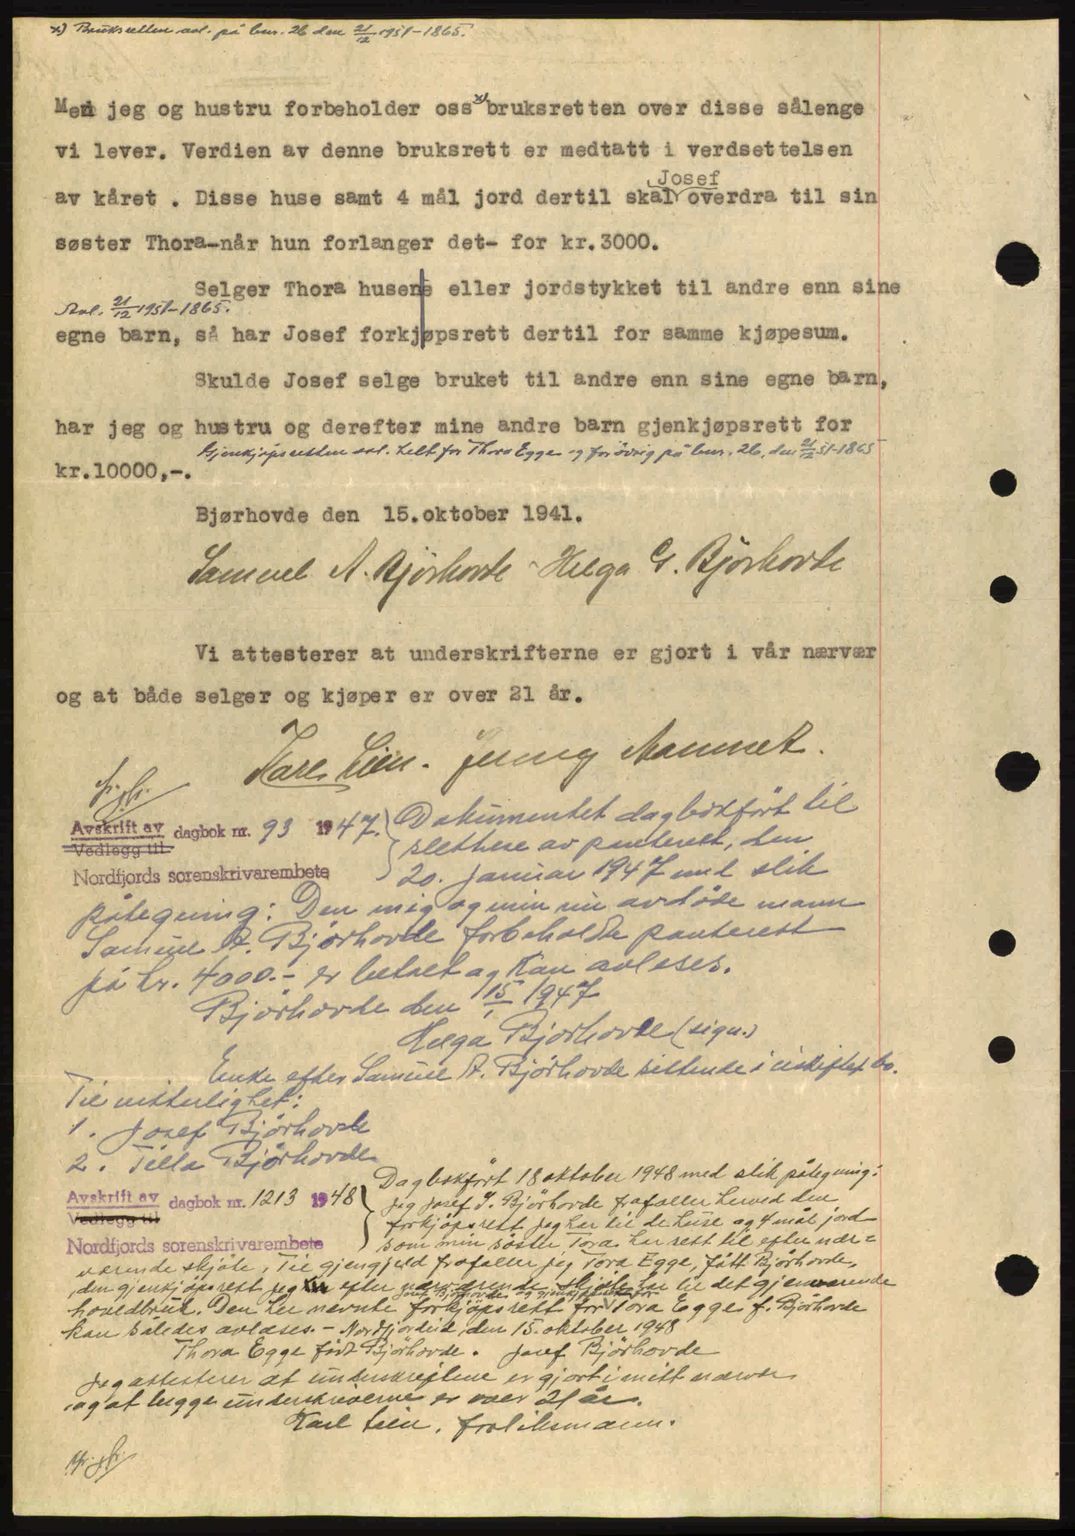 x) Bruksretten avl. på bnr. 26 den 21/12 1951-1865.
Men jeg og hustru forbeholder oss x) bruksretten over disse sålenge
vi lever. Verdien av denne bruksrett er medtatt i verdsettelsen
Josef
av kåret . Disse huse samt 4 mål jord dertil skal overdra til sin
søster Thora-når hun forlanger det- for kr.3000.
Selger Thora husene eller jordstykket til andre enn sine
Avl. 21/12 1951-1865.
egne barn, så har Josef forkjøpsrett dertil for samme kjøpesum.
Skulde Josef selge bruket til andre enn sine egne barn,
har jeg og hustru og derefter mine andre barn gjenkjøpsrett for
Gjenkjøpsretten avl. helt for Thora Egge og forøvrig på bnr. 26, den 21/12 51-1865
kr.10000,-.
Bjørhovde den 15.oktober 1941.
Samuel A. Bjørhovde - Helga G. Bjørhovde
Vi attesterer at underskrifterne er gjort i vår nærvær
og at både selger og kjøper er over 21 år.
Karl Lien. Jenny
Avskrift av dagbok nr. 93 1947.
Vedlegg til
Nordfjords sorenskrivarembete
Dokumentet dagbokført til
slettelse av panterett, den
20. januar 1947 med slik
påtegning: Den mig og min nu avdøde mann
Samuel A. Bjørhovde forbeholdte panterett
på kr. 4000.- er betalt og kan avleses.
Bjørhovde den 15/1 1947
Helga Bjørhovde (sign.)
Enke efter Samuel A. Bjørhovde sittende i uskiftet bo.
Til vitterlighet:
1. Josef Bjørhovde
2. Tilla Bjørhovde
Avskrift av dagbok nr. 1213 1948
Vedlegg til
Nordfjords sorenskrivarembete
Dagbokført 18 oktober 1948 med slik påtegning:
Jeg Josef S. Bjørhovde frafaller herved den
forkjøpsrett jeg har til de huse og 4 mål jord
som min søster Tora har rett til efter nær=
værende skjøte. Til gjengjeld frafaller jeg Tora Egge, født Bjørhovde,
den gjenkjøpsrett jeg efter nærværende skjøte har til det gjenværende
Josef Bjørhovde og gjenkjøpsrett for
hovedbruk. Den her nevnte forkjøpsrett for Tora Egge f. Bjørhovde
kan således avleses. - Nordfjordeid, den 15. oktober 1948
Thora Egge født Bjørhovde. Josef Bjørhovde
Jeg attesterer at underskriftene er gjort i mitt nærvær
og at begge underskriverne er over 21 år.
Karl Lien.